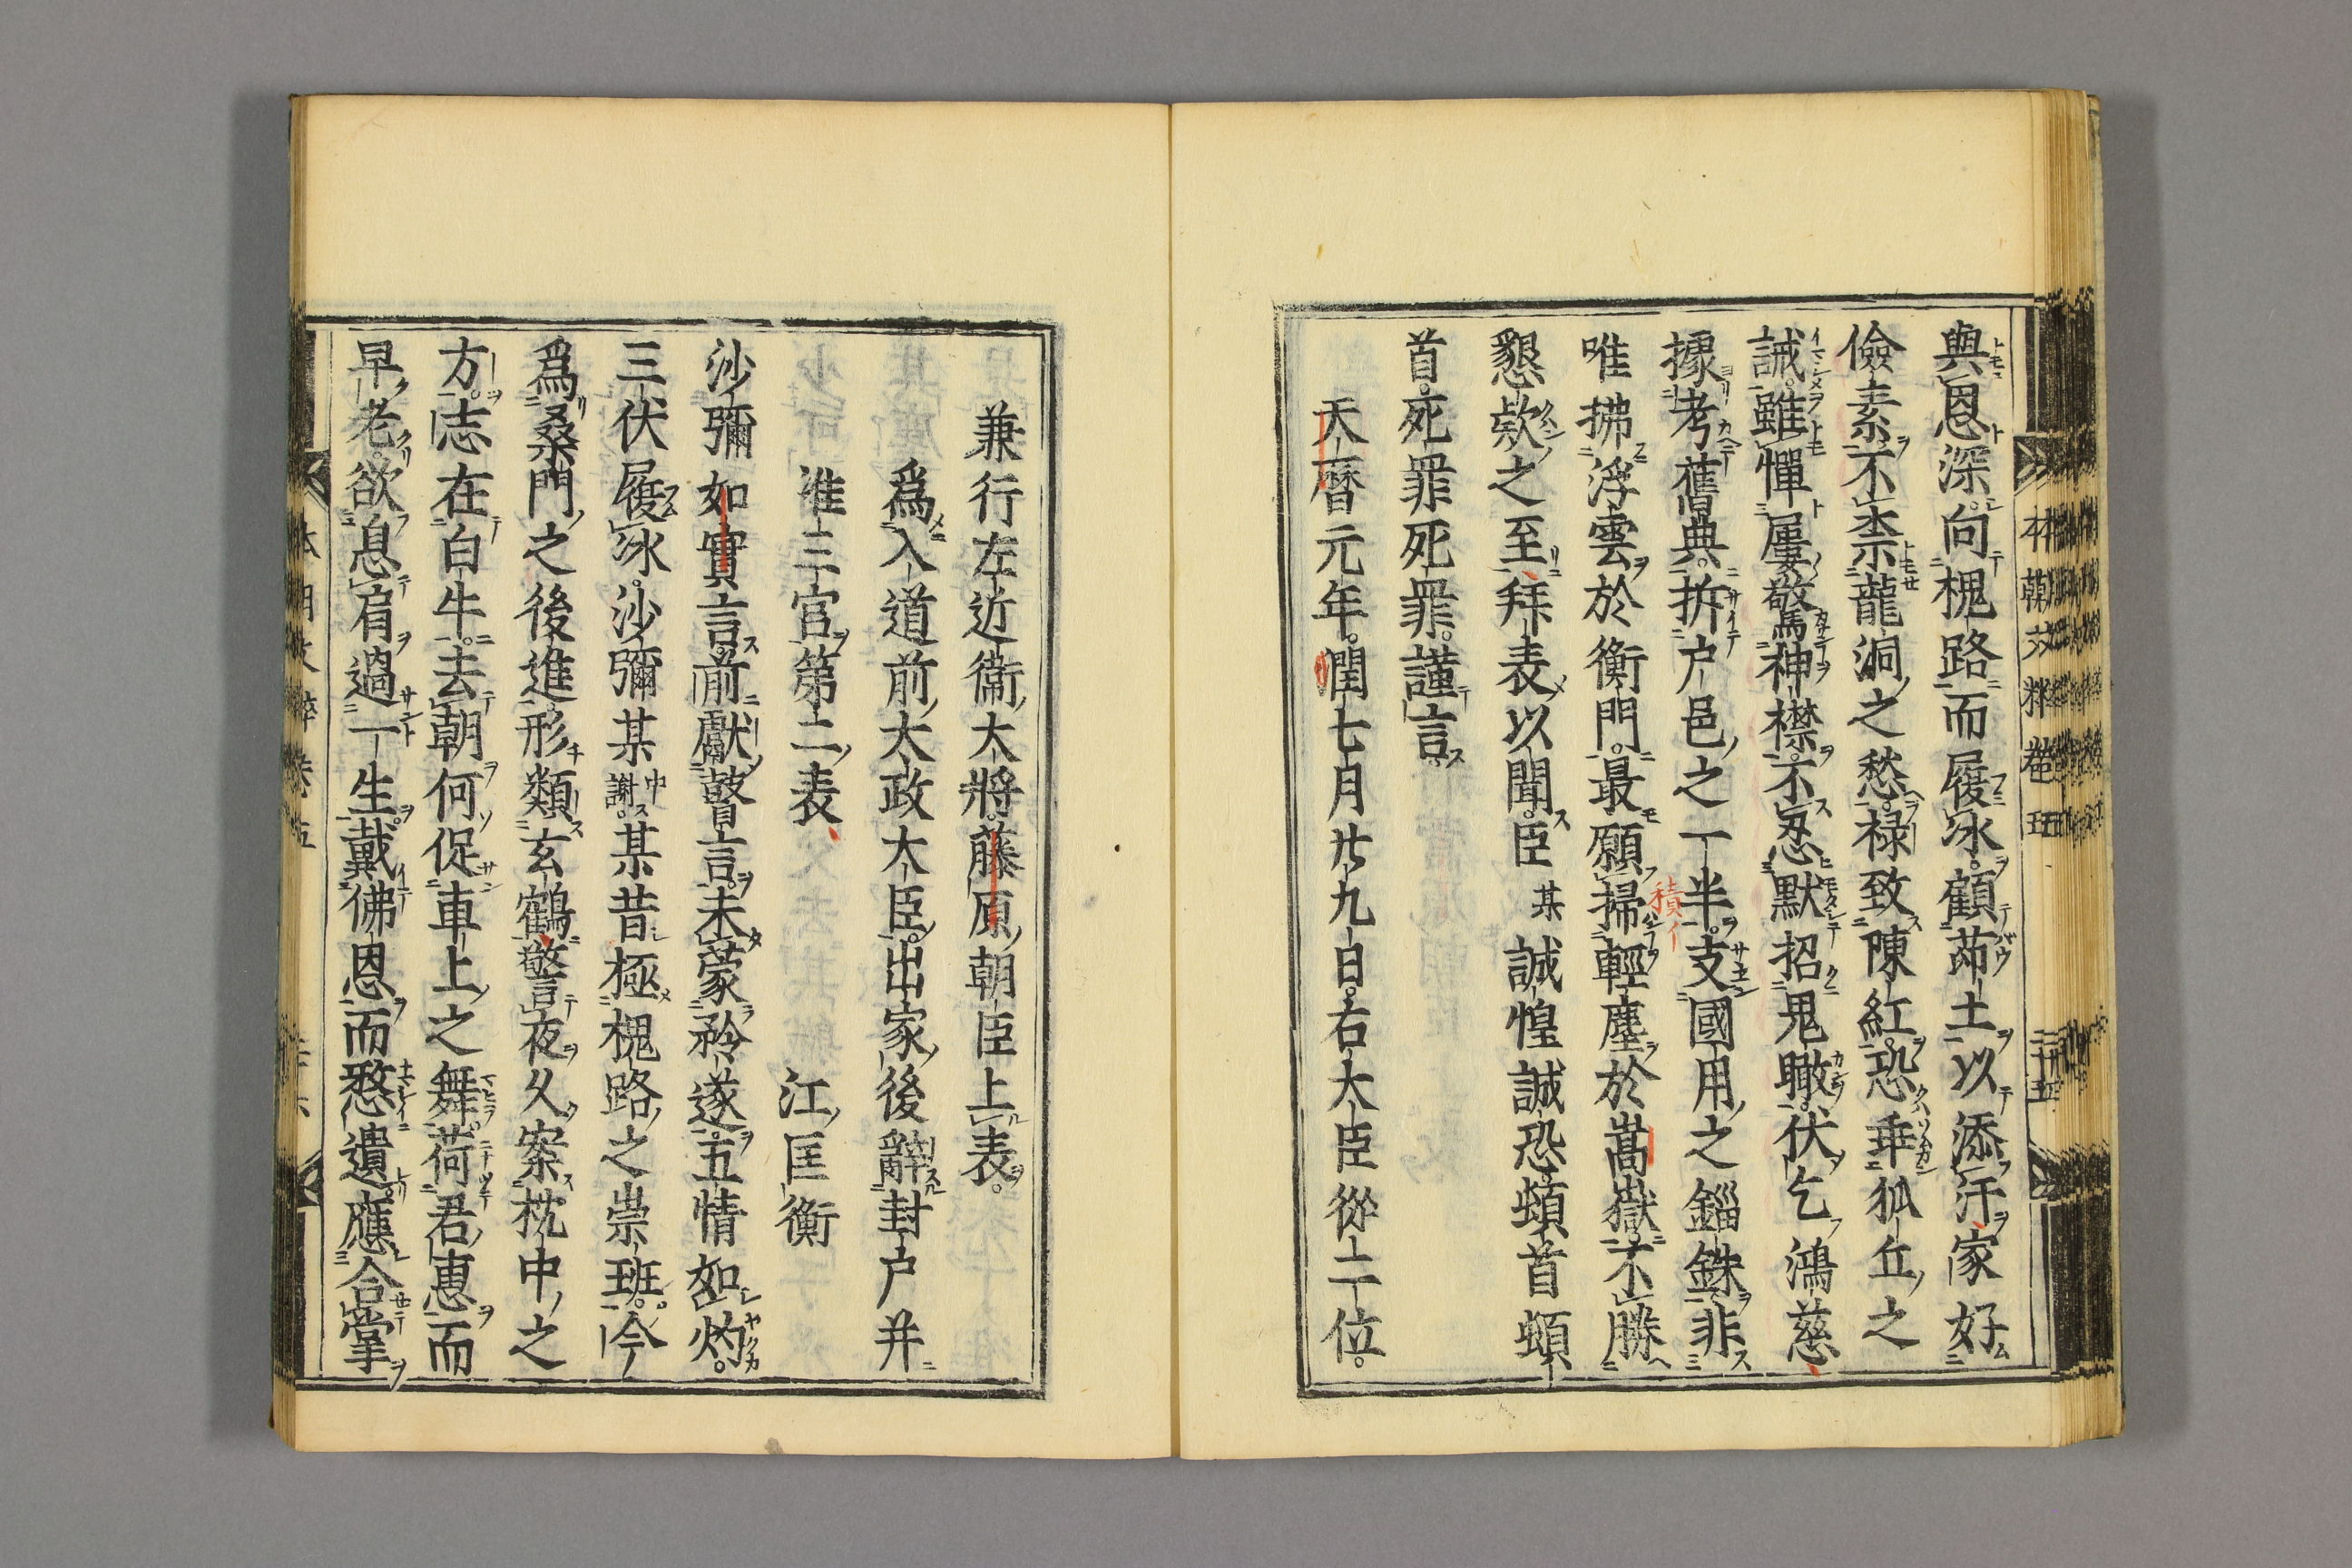 與恩深。向槐路而履氷。顧茆土以添汗。家好
儉素。不柰龍洞之愁。祿致陳紅。恐乖狐丘之
誡。雖憚屢驚神襟。不忍默招鬼瞰。伏乞鴻慈
據考舊典。拆戸邑之一半。支國用之錙銖。非
積イ
唯拂浮雲於衡門。最願掃輕塵於嵩嶽。不勝
懇欵之至。拜表以聞。臣某誠惶誠恐頓首頓
首。死罪死罪。謹言
天曆元年。閏七月廿九日。右大臣從二位。
兼行左近衞大將。藤原朝臣上表。
爲入道前太政大臣。出家後辭封戸并
准三宮第二表
江匡衡
沙彌如實言。前獻瞽言。未蒙矜遂。五情如灼。
三伏履氷。沙彌某中謝。某昔極槐路之崇班。今
爲桑門之後進。形類玄鶴。警夜久案枕中之
方。志在白牛。去朝何促車上之舞。荷君惠而
早老。欲息肩過一生。戴佛恩而憖遺。應合掌
本朝文粹卷五